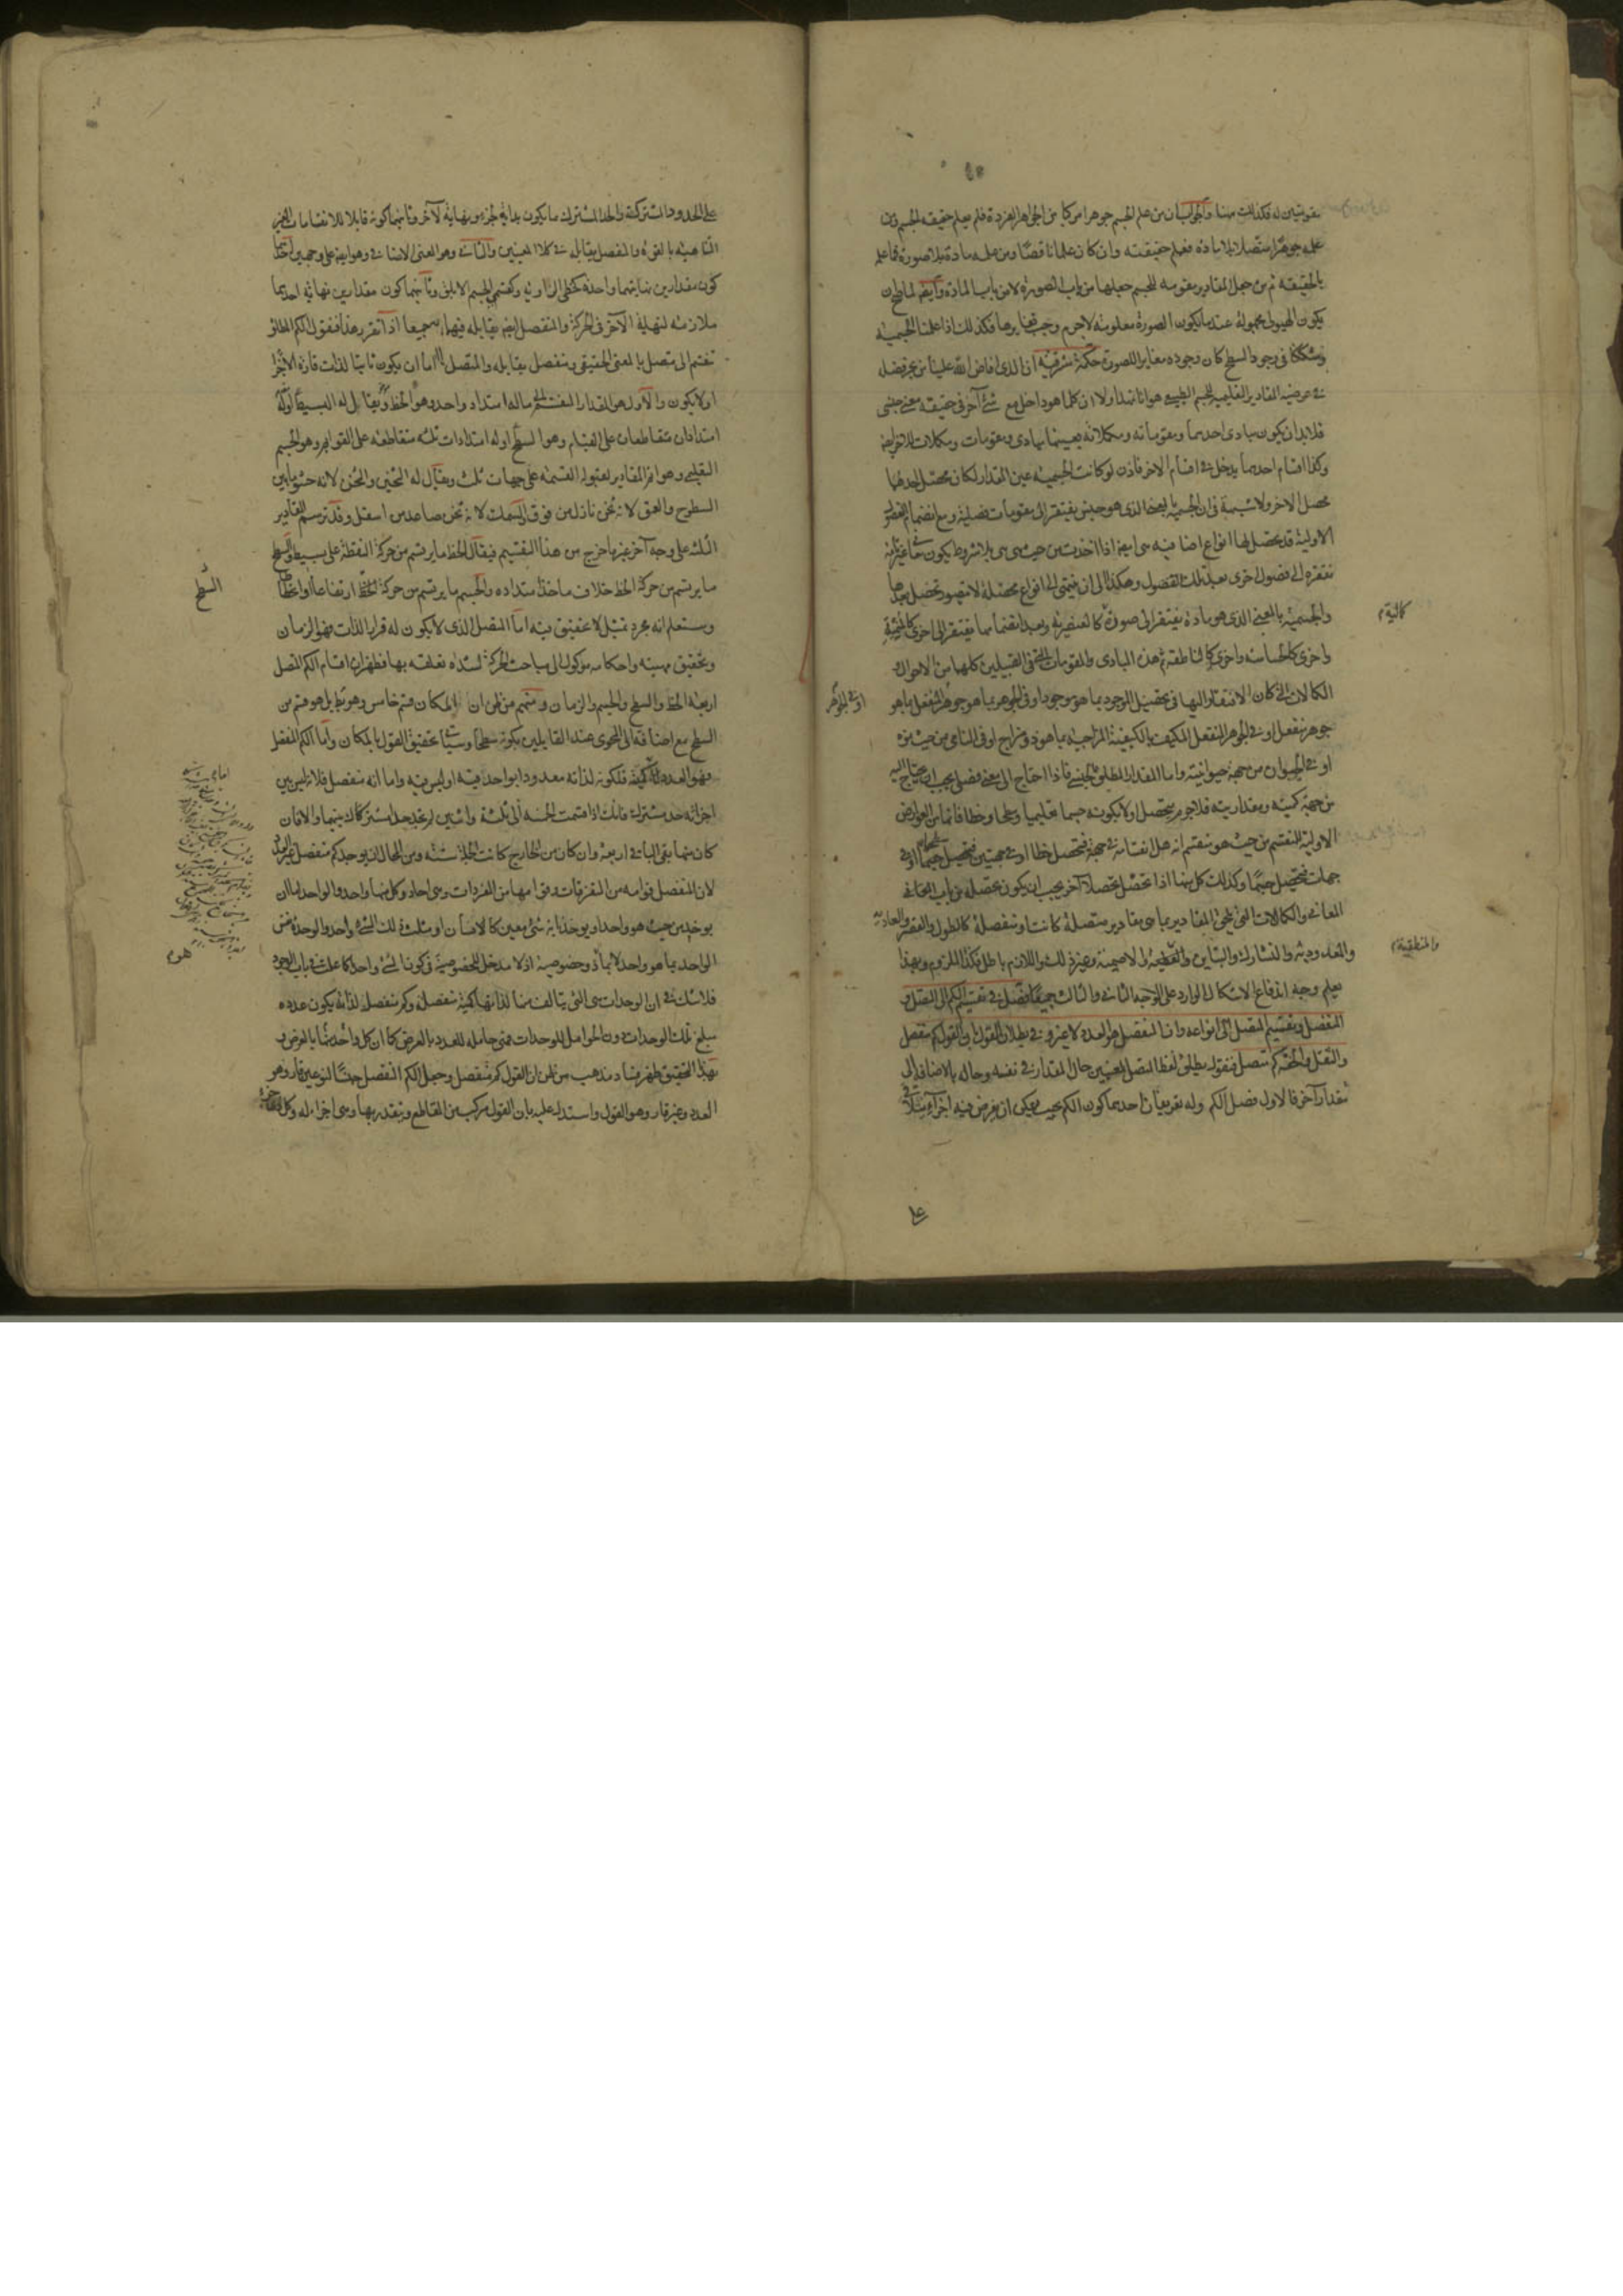 مقومتين له فكذلك هنا والجواب ان من علم الجسم جوهرا مركبا من الجواهر الفردة فلم يعلم حقيقة الجسم ومن
علمه جوهرا متصلا بلا مادة فعلم حقيقته وان كان علما ناقصا ومن علمه مادة بلا صورة فما علمه
بالحقيقة ثم من جعل المقادير مقومة للجسم جعلها من باب الصورة لا من باب المادة وايضا لما صح ان
يكون الهيولى مجهولة عند ما يكون الصورة معلومة لاجرم وجب تغايرها فكذلك اذا علمنا الجسمية
وشككنا في وجود السطح كان وجوده مغايرا للصورة حكمة مشرقية ان الذي افاض الله علينا من بحر فضله
في عرضية المقادير التعليمية للجسم الطبيعي هو انا نمهد اولا ان كلما هو داخل مع شيء آخر في حقيقة معنى جنسي
فلابد ان يكون مبادى احدهما ومقوماته ومكملاته بعينها مبادى ومقومات ومكملات للآخر ايضا
وكذا اقسام احدهما يدخل في اقسام الاخر فاذن لو كانت الجسمية عين المقدار لكان محصل احدهما
محصل الاخر ولا شبهة في ان الجسمية بالمعنى الذي هو جنس يفتقر الى مقومات فصلية ومع انضمام الفصول
الاولية قد يحصل لها انواع اضافية هي ايضا اذا اخذت من حيث هي هي بلا شروط يكون معانيها
مفتقرة الى فصول اخرى بعد تلك الفصول وهكذا الى ان ينتهى الى انواع محصلة لا يتصور تحصل بعدها
والجسمية بالمعنى الذي هو مادة يفتقر الى صورة كالعنصرية وبعد انضمامها يفتقر الى اخرى
كمالية م
واخرى كالحساسة واخرى كالناطقة ثم هذه المبادى والمقومات التي في القبيلين كلها من الاحوال
الكمالات التي كان الافتقار اليها في تحصيل الموجود بما هو موجود او في الجوهر بما هو جوهر المنفعل بما هو
او في الجوهر
جوهر منفعل او في الجوهر المنفعل المكيف بالكيفية المزاجية بما هو ذو مزاج او في النامى من حيث نموه
او في الحيوان من جهة حيوانيته واما المقدار المطلق الجنسي فاذا احتاج الى معنى فصلي يجب ان يحتاج اليه
من جهة كميته ومقداريته فلاجرم يتحصل اولا بكونه جسما تعليميا وسطحا وخطا فانها من العوارض
الاولية للمنقسم من حيث هو منقسم انه هل انقسامه في جهة فتحصل خطا او في جهتين فتحصل سطحا او في
جهات فتحصل جسما وكذلك كل منها اذا تحصل تحصلا آخر يجب ان يكون تحصله من باب
المعاني والكمالات التي يلحق المقادير بما هي مقادير متصلة كانت او منفصلة كالطول والقصر والعادية
والمعدودية والتشارك والتباين والمنطقية والاصمية وغير ذلك واللازم باطل فكذا الملزوم وبهذا
والمنطقية م
يعلم وجه اندفاع الاشكال الوارد على الوجه الثاني والثالث جميعا فصل في تقسيم الكم الى المتصل و
المنفصل وتقسيم المتصل الى انواعه وان المنفصل هو العدد لا غير وفي بطلان القول بان القول كم منفصل
والثقل والخفة كم متصل فنقول يطلق لفظ المتصل لمعنيين حال المقدار في نفسه وحاله بالاضافة الى
مقدار آخر فالاول فصل الكم وله تعريفان احدهما كون الكم بحيث يمكن ان يفرض فيه اجزاء
على الحدود المشتركة والحد المشترك ما يكون بداية لجزء ونهاية لآخر وثانيهما كونه قابلا للانقسامات الغير
المتناهية بالقوة والمنفصل يقابله في كلا المعنيين والثاني وهو المعنى الاضافي وهو ايضا على وجهين احدهما
كون مقدارين نهايتهما واحدة كخطى الزاوية وكقسمي الجسم الابلق وثانيهما كون مقدارين نهاية احدهما
ملازمة لنهاية الآخر في الحركة والمنفصل ايضا يقابله فيهما جميعا اذا تقرر هذا فنقول الكم المطلق
تنقسم الى متصل بالمعنى الحقيقي ومنفصل يقابله والمتصل اما ان يكون ثابتا لذات قارة الاجزاء
اولا يكون والاول هو المقدار المنقسم الى ما له امتداد واحد وهو الخط ويقال له البسيط اوله
امتدادان متقاطعان على القيام وهو السطح اوله امتدادات ثلثه متقاطعة على القوائم وهو الجسم
التعليمي وهو اتم المقادير لقبوله القسمة على جهات ثلث ويقال له الثخين والثخن لانه حشو ما بين
السطوح والعمق لانه ثخن نازل من فوق السمك لانه ثخن صاعد من اسفل وقد ترسم المقادير
الثلثة على وجه آخر غير ما خرج من هذا التقسيم فيقال الخط ما يرتسم من حركة النقطة على بسيط والسطح
السطح
ما يرتسم من حركة الخط خلاف ماخذ امتداده والجسم ما يرتسم من حركة السطح ارتفاعا وانحطاطا
وستعلم انه مجرد تمثيل لا تحقيق فيه اما المتصل الذي لا يكون له قرار الذات فهو الزمان
وتحقيق مهيته واحكامه موكول الى مباحث الحركة لشدة تعلقه بها فظهر ان اقسام الكم المتصل
اربعة الخط والسطح والجسم والزمان ومنهم من ظن ان المكان قسم خامس وهو باطل بل هو قسم من
السطح مع اضافة الى المحوى عند القايلين بكونه سطحا وسيأتي تحقيق القول بالمكان واما الكم المنفصل
فهو العدد اما كميته فلكونه لذاته معدودا بواحد فيه او ليس فيه واما انه منفصل فلانه ليس بين
اجزائه حد مشترك فانك اذا قسمت الخمسة الى ثلثة واثنين لم تجد حدا مشتركا بينهما والا فان
كان منها بقى الباقي اربعة وان كان من الخارج كانت الجملة ستة ومن المحال ان يوجد كم منفصل غير العدد
لان المنفصل قوامه من المتفرقات وقوامها من المفردات وهي احاد وكل منها واحد والواحد اما ان
يوخذ من حيث هو واحد او يوخذ انه شيء معين كالانسان او مثلث فان الشيء واحد والوحدة نفس
الواحد بما هو واحد لا بما ذو خصوصية اذ لا مدخل للخصوصية في كون الشيء واحدا كما علمت في باب الوجود
هو م
فلاشك في ان الوحدات هي التي يتالف منها لذاتها كمية منفصلة وكم منفصل لذاته يكون عدده
مبلغ تلك الوحدات واما الحوامل للوحدات فهي حاملة للعدد بالعرض كما ان كل واحد منها بالعرض و
بهذا التحقيق ظهر فساد مذهب من ظن ان القول كم منفصل وجعل الكم المنفصل جنسا لنوعين قار وهو
العدد وغير قار وهو القول واستدل عليه بان القول مركب من المقاطع ويتقدر بها وهي اجزاء له وكل